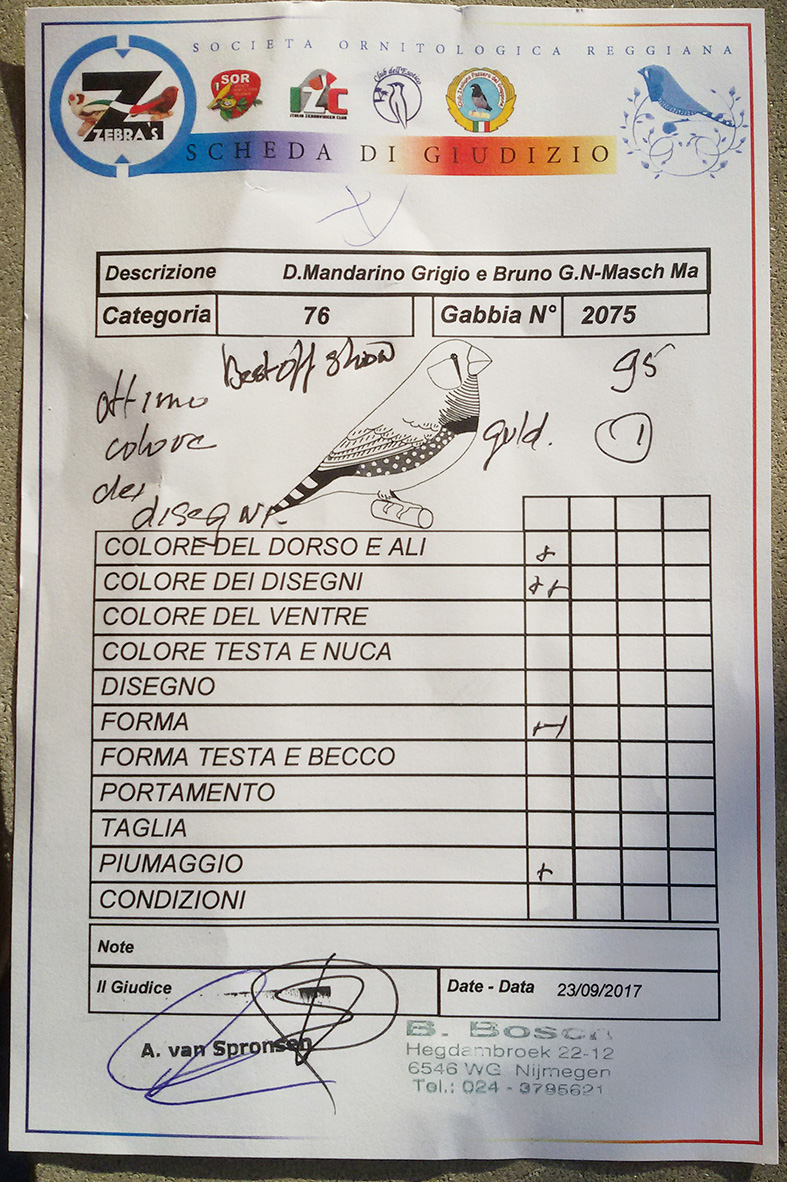 SOCIETA ORNITOLOGICA REGGIANA
ZEBRA'S
SOR
IZC
ITALIA ZEBRAVINKEN CLUB
Club dell'Esotico
SCHEDA DI GIUDIZIO
Descrizione D.Mandarino Grigio e Bruno G.N-Masch Ma
Categoria 76 Gabbia N° 2075
Best off show 95
ottimo
colore guld. 1
dei
disegni
COLORE DEL DORSO E ALI +
COLORE DEI DISEGNI ++
COLORE DEL VENTRE
COLORE TESTA E NUCA
DISEGNO
FORMA
FORMA TESTA E BECCO
PORTAMENTO
TAGLIA
PIUMAGGIO +
CONDIZIONI
Note
Il Giudice Date - Data 23/09/2017
A. van Spronsen
B. Bosch
Hegdambroek 22-12
6546 WG Nijmegen
Tel.: 024 - 3795621